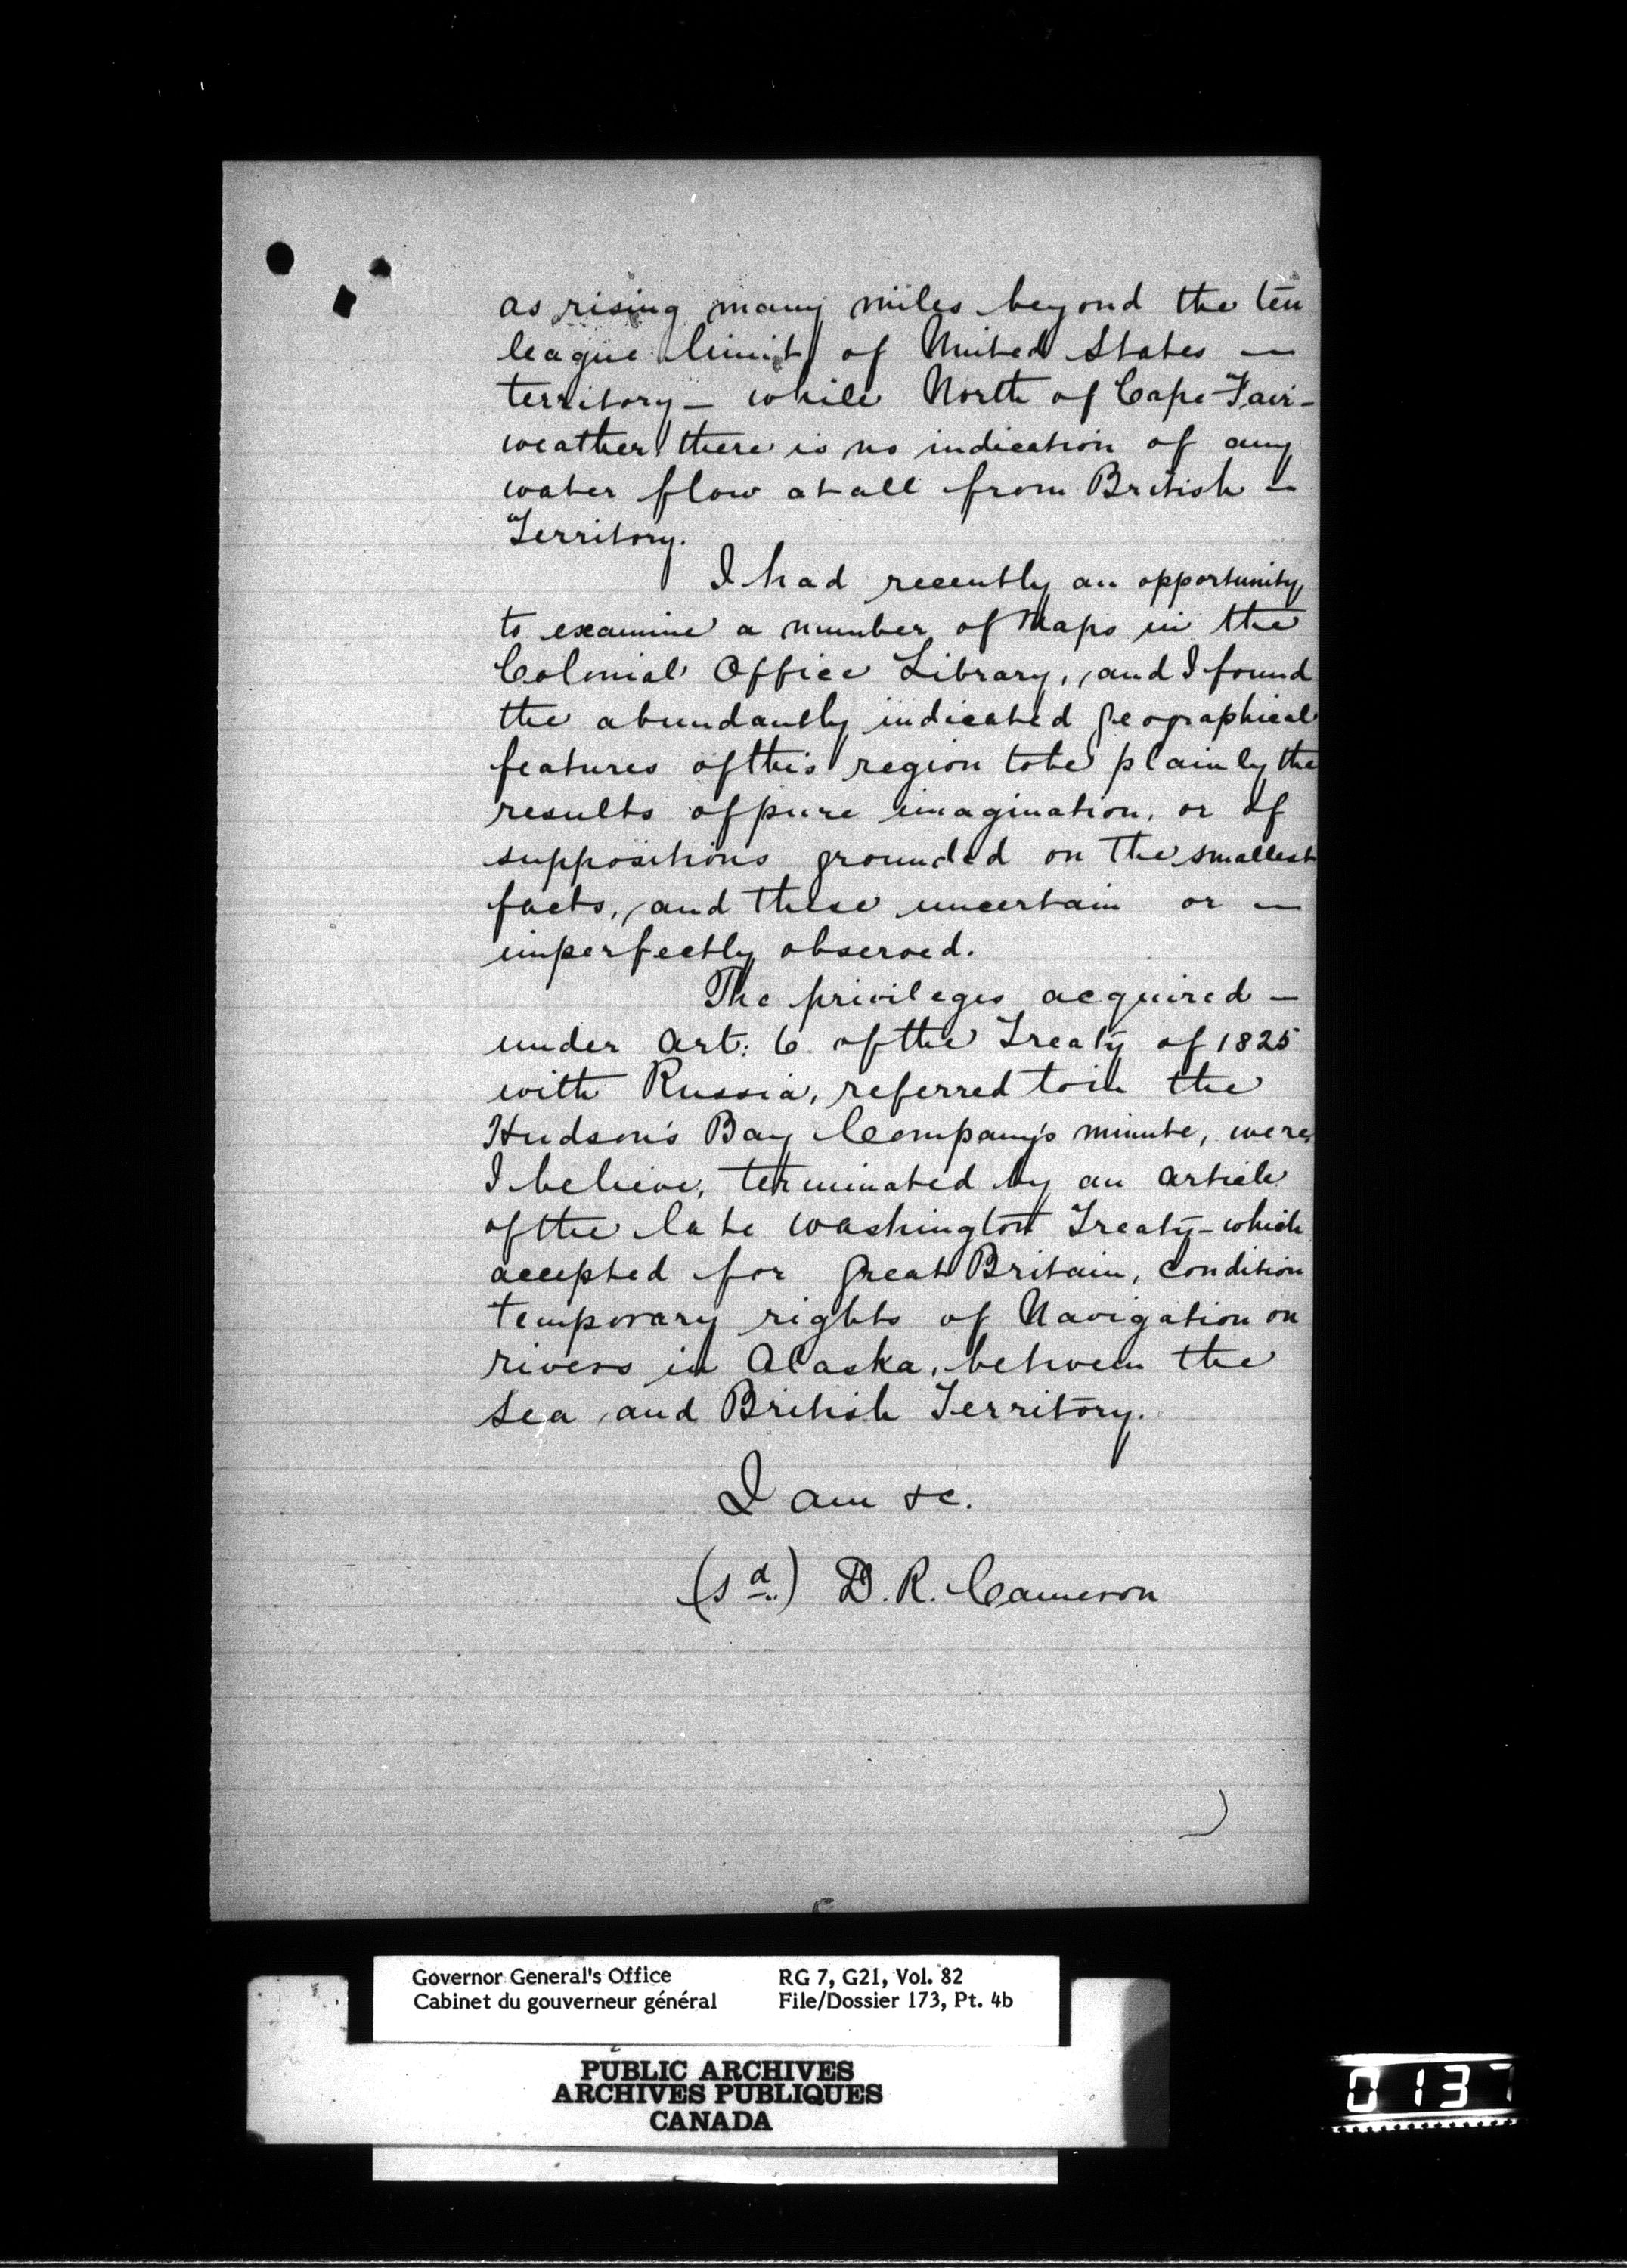 as rising many miles beyond the ten
league limit of United States —
territory — while North of Cape Fair-
weather there is no indication of any
water flow at all from British —
Territory.
I had recently an opportunity
to examine a number of Maps in the
Colonial Office Library, and I found
the abundantly indicated geographical
features of this region to be plainly the
results of pure imagination, or of
suppositions grounded on the smallest
facts, and these uncertain or —
imperfectly observed.
The privileges acquired —
under Art: 6. of the Treaty of 1825
with Russia, referred to in the
Hudson's Bay Company's minute, were,
I believe, terminated by an article
of the late Washington Treaty — which
accepted for Great Britain, condition
temporary rights of Navigation on
rivers in Alaska, between the
Sea and British Territory.
I am &c.
(sd.) D. R. Cameron
Governor General's Office RG 7, G21, Vol. 82
Cabinet du gouverneur général File/Dossier 173, Pt. 4b
PUBLIC ARCHIVES
ARCHIVES PUBLIQUES
CANADA
0137